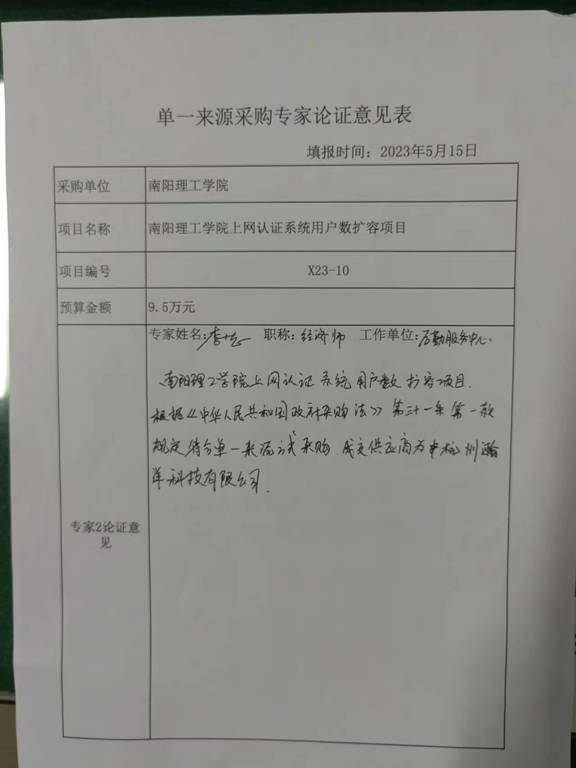 单一来源采购专家论证意见表
填报时间：2023年5月15日
采购单位 南阳理工学院
项目名称 南阳理工学院上网认证系统用户数扩容项目
项目编号 X23-10
预算金额 9.5万元
专家姓名: 职称: 经济师 工作单位: 后勤服务中心.
南阳理工学院上网认证系统用户数扩容项目
根据《中华人民共和国政府采购法》第三十一条第一款
规定符合单一来源方式采购 成交供应商为 州瀚
科技有限公司.
专家2论证意
见